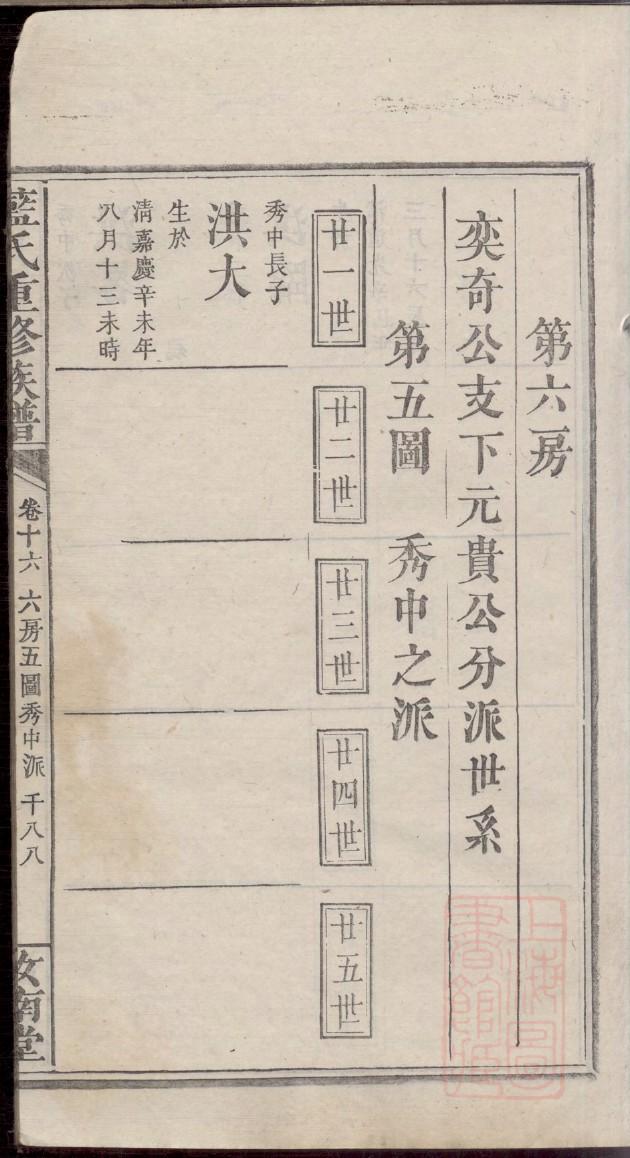 第六房
奕奇公支下元貴公分派世系
第五圖 秀中之派
廿一世
廿二世
廿三世
廿四世
廿五世
秀中長子
洪大
生於
清嘉慶辛未年
八月十三未時
藍氏重修族譜
卷十六 六房五圖秀中派 千八八
汝南堂
上海圖書館藏